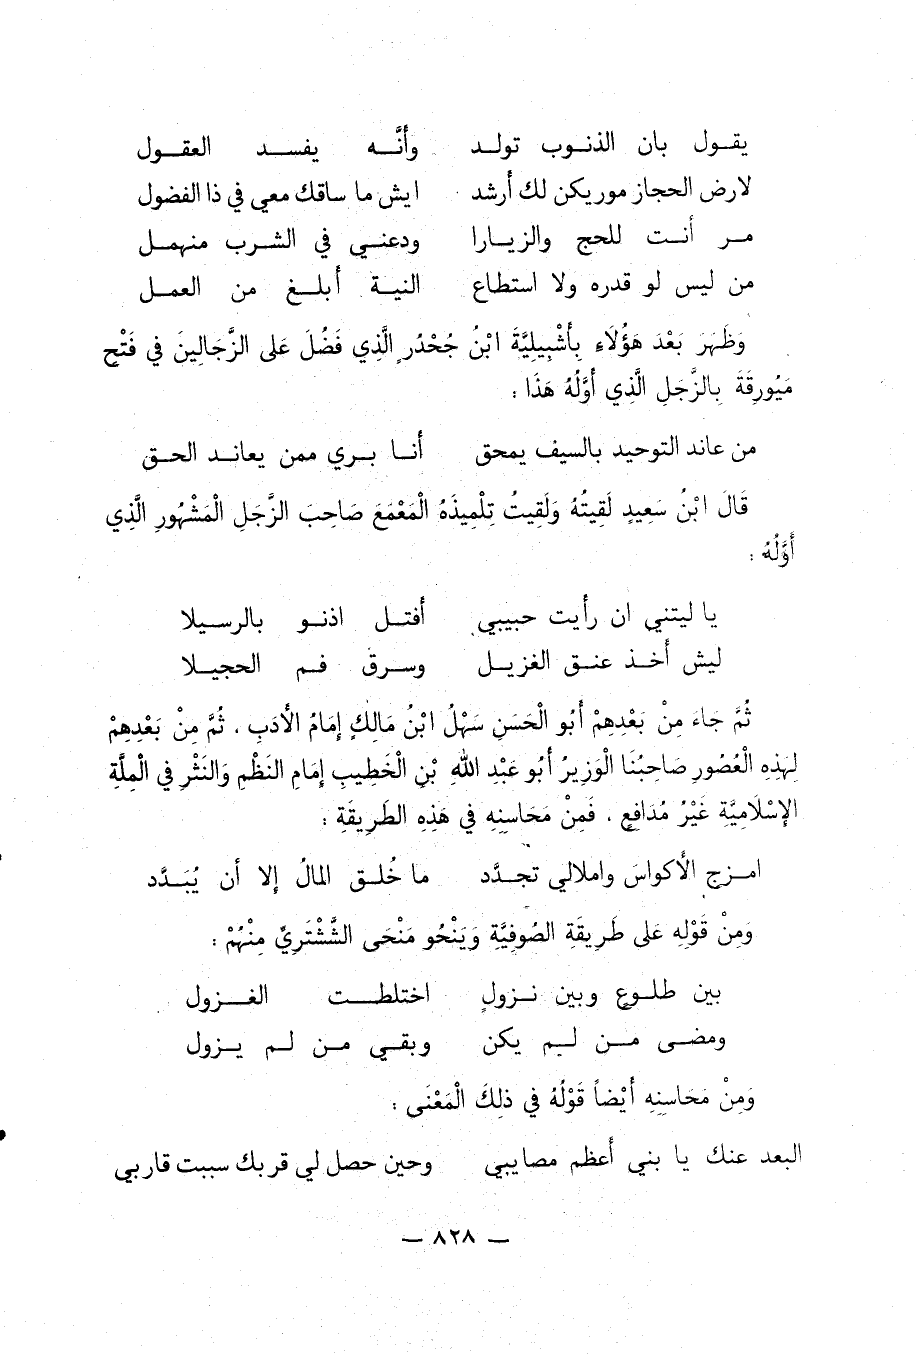 يقول بان الذنوب تولد وأنَّه يفسد العقول
لارض الحجاز موريكن لك أرشد ايش ما ساقك معي في ذا الفضول
مر أنت للحج والزيارا ودعني في الشرب منهمل
من ليس لو قدره ولا استطاع النية أبلغ من العمل
وَظَهَرَ بَعْدَ هَؤُلَاءِ بِأَشْبِيلِيَّةَ ابْنُ جُحْدُرٍ الَّذِي فَضُلَ عَلَى الزَّجَالِينَ فِي فَتْحِ
مَيُورِقَةَ بِالزَّجَلِ الَّذِي أَوَّلُهُ هَذَا :
من عاند التوحيد بالسيف يمحق أنا بري ممن يعاند الحق
قَالَ ابْنُ سَعِيدٍ لَقِيتُهُ وَلَقِيتُ تِلْمِيذَهُ الْمَعْمَعَ صَاحِبَ الزَّجَلِ الْمَشْهُورِ الَّذِي
أَوَّلُهُ :
يا ليتني ان رأيت حبيبي أفتل اذنو بالرسيلا
ليش أخذ عنق الغزيل وسرق فم الحجيلا
ثُمَّ جَاءَ مِنْ بَعْدِهِمْ أَبُو الْحَسَنِ سَهْلُ ابْنُ مَالِكٍ إِمَامُ الأَدَبِ . ثُمَّ مِنْ بَعْدِهِمْ
لِهذِهِ الْعُصُورِ صَاحِبُنَا الْوَزِيرُ أَبُو عَبْدِ اللهِ بْنِ الْخَطِيبِ إِمَامِ النَظْمِ وَالنَثْرِ فِي الْمِلَّةِ
الإِسْلَامِيَّةِ غَيْرُ مُدَافِعٍ . فَمِنْ مَحَاسِنِهِ فِي هَذِهِ الطَرِيقَةِ :
امزج الأَكواسَ واملالي تجدَّد ما خُلق المَالُ إلا أن يُبَدَّد
وَمِنْ قَوْلِهِ عَلَى طَرِيقَةِ الصُوفِيَّةِ وَيَنْحُو مَنْحَى الشَّشْتَرِيِّ مِنْهُمْ :
بين طلوع وبين نزولِ اختلطت الغزول
ومضى من لم يكن وبقي من لم يزول
وَمِنْ مَحَاسِنِهِ أَيْضاً قَوْلُهُ فِي ذلِكَ الْمَعْنَى :
البعد عنك يا بني أعظم مصايبي وحين حصل لي قربك سببت قاربي
— ٨٢٨ —